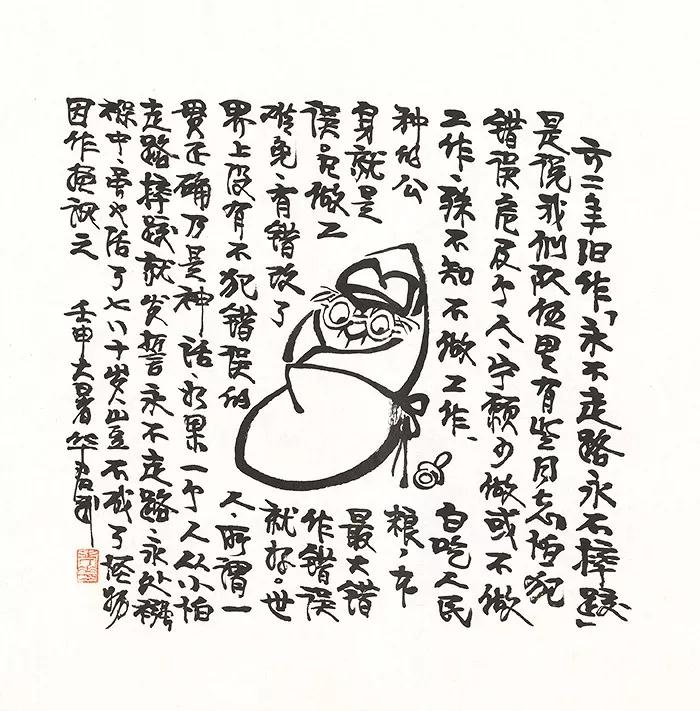 六二年旧作「永不走路永不摔跤」
是说我们队伍里有些同志怕犯
错误危及个人、宁愿少做或不做
工作、殊不知不做工作、白吃人民
种的公粮、本
身就是最大错
误、凡做工作错误
难免、有错改了就好。世
界上没有不犯错误的人、所谓一
贯正确乃是神话、如果一个人从小怕
走路摔跤就发誓永不走路、永处襁
褓中、活了七八十岁岂不成了怪物
因作
壬申大暑华君武